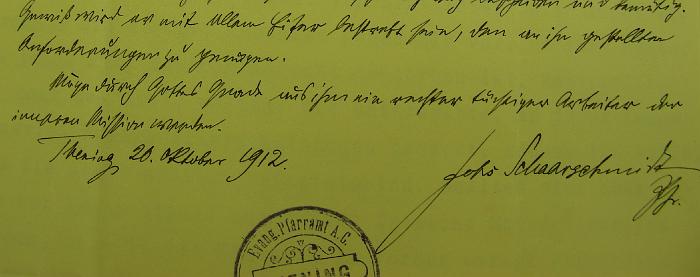 bescheiden und demütig.
Gewiß wird er mit allem Eifer bestrebt sein, den an ihn gestellten
Anforderungen zu genügen.
Möge durch Gottes Gnade aus ihm ein rechter tüchtiger Arbeiter der
inneren Mission werden.
Thening 20. Oktober 1912.
Johs Schaarschmidt
Pfr.
Evang. Pfarramt A.C.
ENING